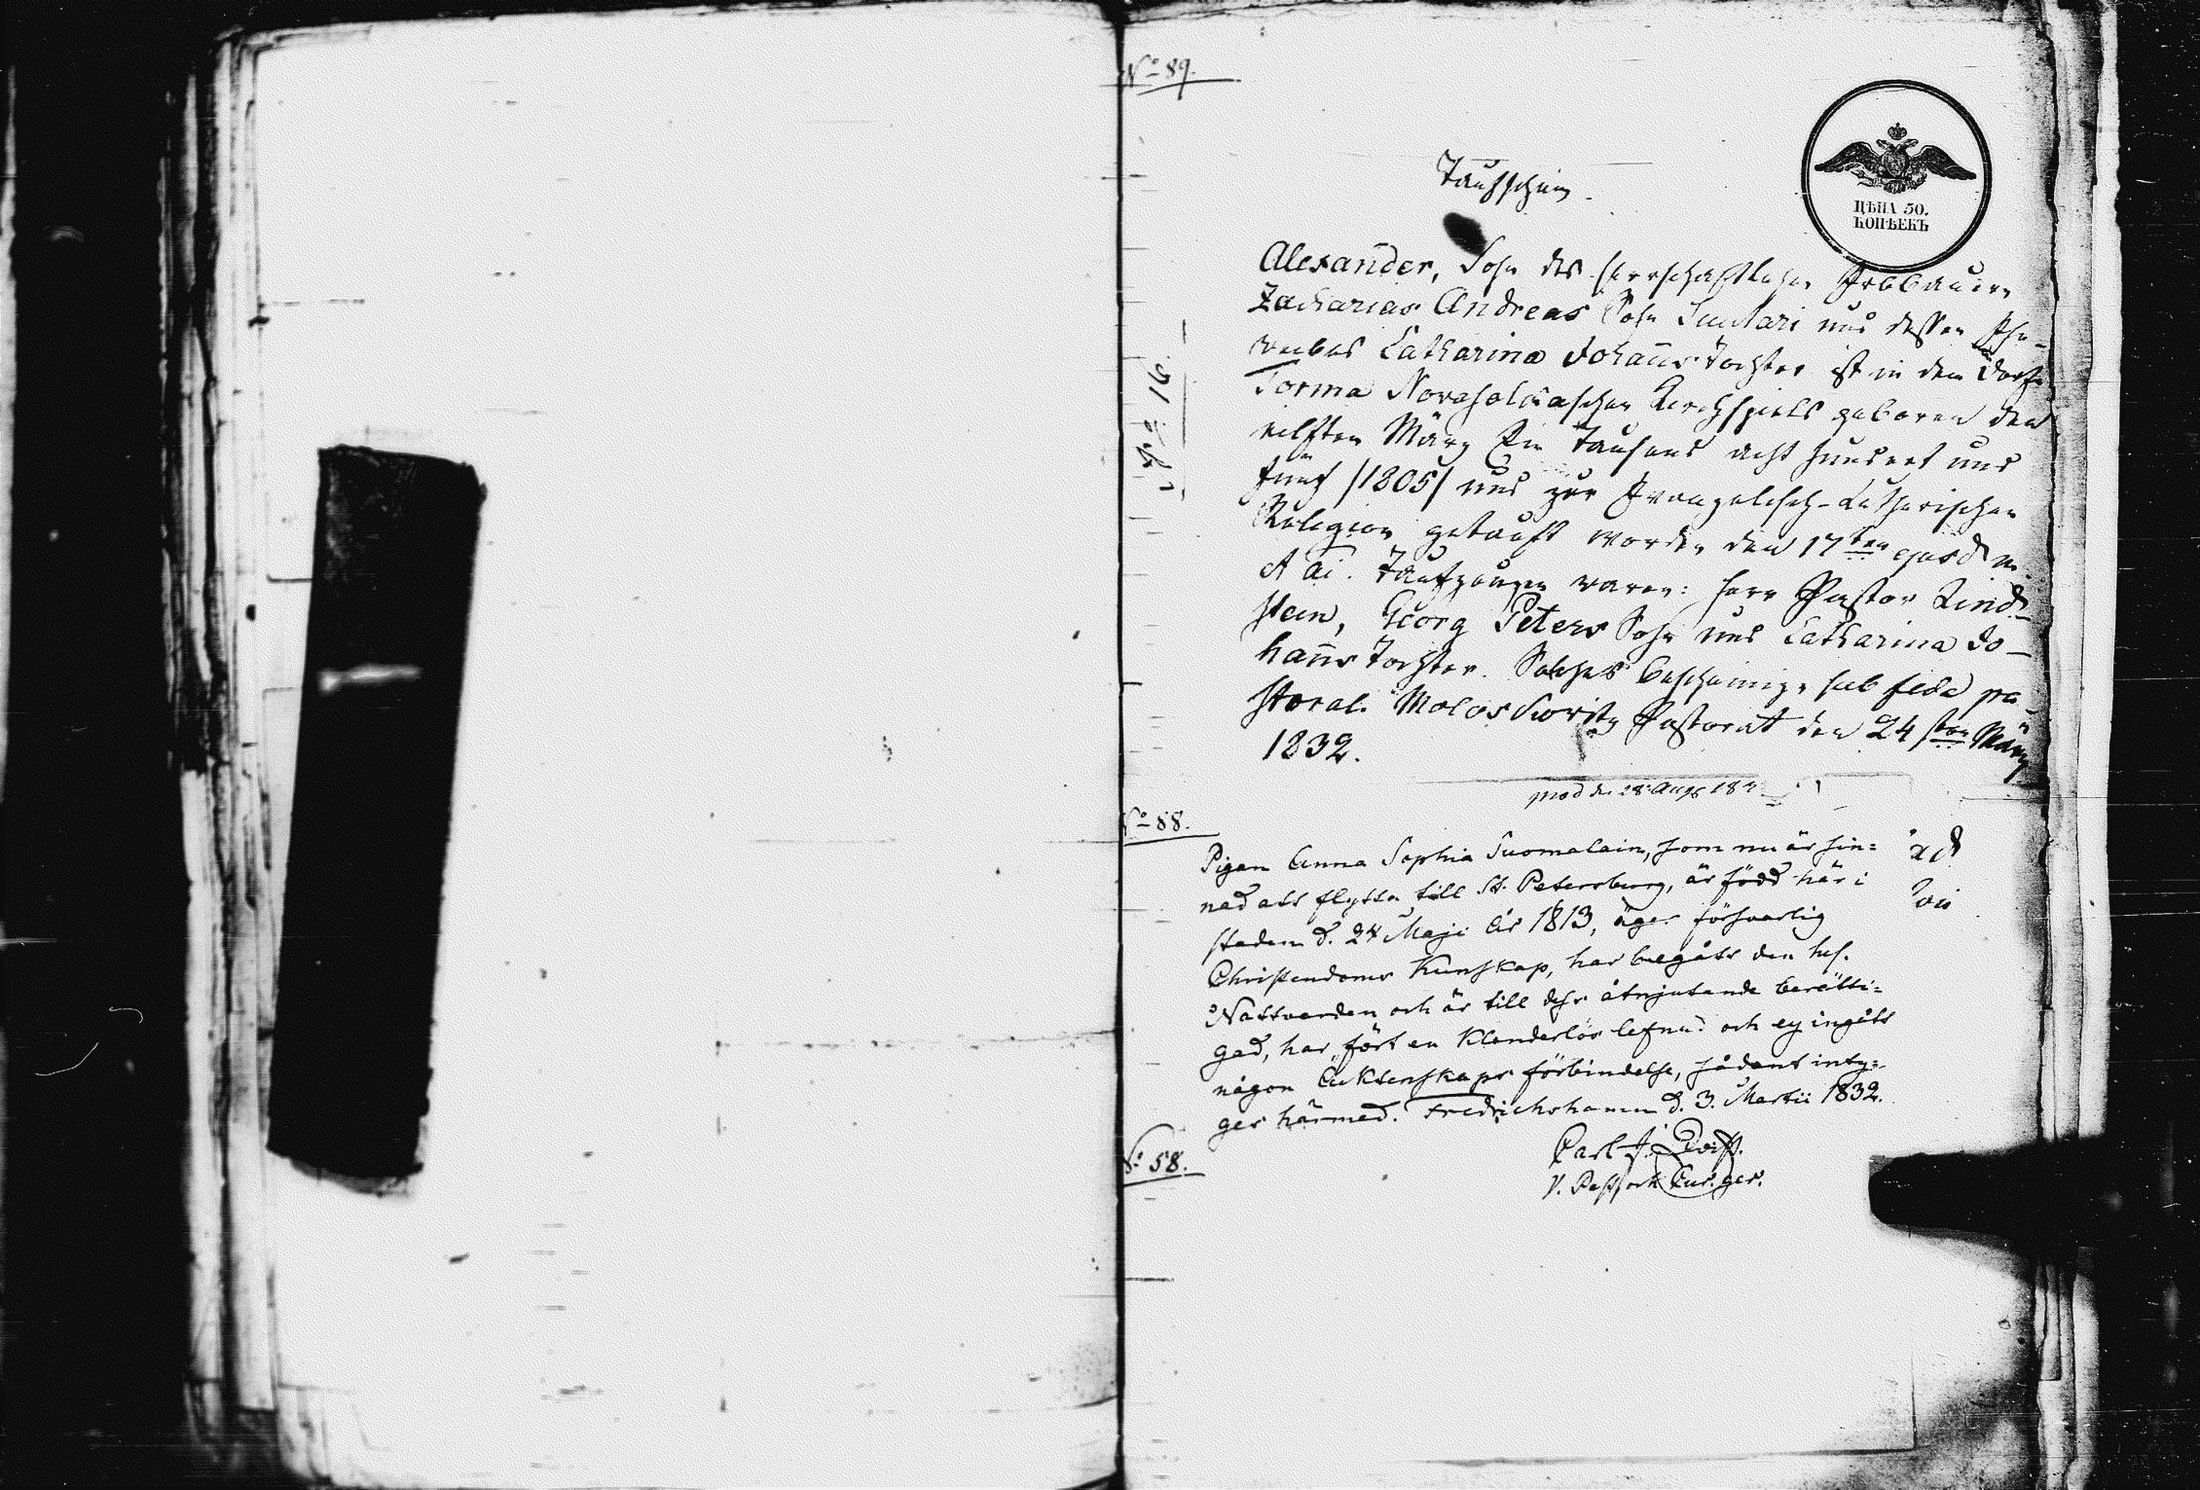 No 89.
Taufschein.
ЦѢНА 50.
КОПѢЕКЪ
Alexander, Sohn des herrschaftlichen Erbbauern
Zacharias Andreas Sohn und dessen Ehe-
weibes Catharina Johanns Tochter ist in dem Dorfe
Torma Kirchspiels geboren den
eilften März Ein Tausend acht hundert und
fünf /1805/ und zur Evangelisch-Lutherischen
Religion getauft worden den 17ten ejusdem
et ai. Taufzeugen waren: Herr Pastor Lind-
stein, Georg Peters Sohn und Catharina Jo-
hanns Tochter. Solches bescheinige sub fide pa-
storal. Moloskowitz Pastorat den 24sten März
1832.
No 88.
Pigan Anna Sophia Suomalain, som nu är sin-
nad att flytta till St. Petersburg, är född här i
staden d. 24 Maji år 1813, äger försvarlig
Christendoms Kunskap, har begått den hel.
Nattvarden och är till dess åtnjutande berätti-
gad, har fört en klanderlös lefnad och ej ingått
någon Äktenskaps förbindelse, sådant inty-
ges härmed. Fredrichshamn d. 3. Martii 1832.
Carl J.
No 58.